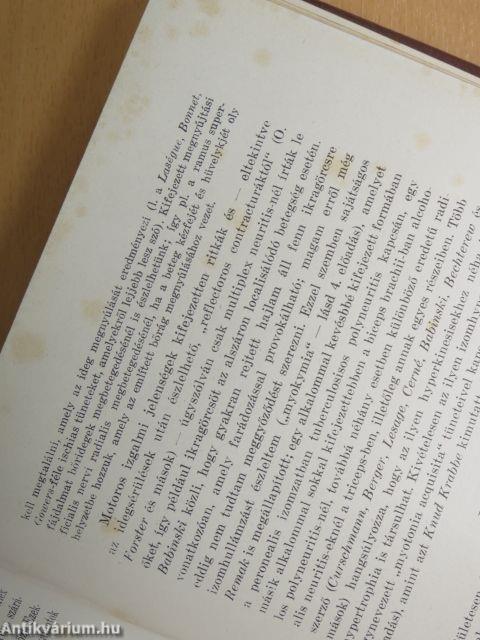 kell megtalálni, amely az ideg megnyúlását eredményezi (l. a Laségue, Bonnet,
Gowers-féle ischias tüneteket, amelyekről lejjebb lesz szó). Kifejezett megnyújtási
fájdalmat bőridegek megbetegedésénél is észlelhetünk; így pl. a ramus super-
ficialis nervi radialis megbetegedésénél, ha a beteg kézfejét és hüvelykjét oly
helyzetbe hozzuk, amely az említett bőrág megnyúlásához vezet.
Motoros izgalmi jelenségek kifejezetten ritkák és — eltekintve
az idegsérülések után észlelhető, „reflectoros contracturáktól" (O.
Forster és mások) — úgyszólván csak multiplex neuritis-nél írták le
őket, így például ikragörcsöt az alszáron localisálódó betegség esetén.
Babinski közli, hogy gyakran rejtett hajlam áll fenn ikragörcsre
vonatkozóan, amely farádozással provokálható; magam erről még
eddig nem tudtam meggyőződést szerezni. Ezzel szemben sajátságos
izomhullámzást észleltem („myokymia" — lásd 4. előadás), amelyet
Remak is megállapított; egy alkalommal kerésbbé kifejezett formában
a peronealis izomzatban tuberculosisos polyneuritis kapcsán, egy
másik alkalommal sokkal kifejezettebben a biceps brachii-ban alcoho-
los polyneuritis-nél, továbbá néhány esetben különböző eredetű radi-
alis neuritis-eknél a triceps-ben, illetőleg annak egyes részeiben. Több
szerző (Curschmann, Berger, Lesage, Cerné, Babinski, Bechterew és
mások) hangsúlyozza, hogy az ilyen hyperkinesisekhez néha
hypertrophia is társulhat. Kivételesen az ilyen
nevezett „myotonia acquisita" tüneteivel
adás), amint azt Knud Krabbe kimutatt
Antikvárium.hu